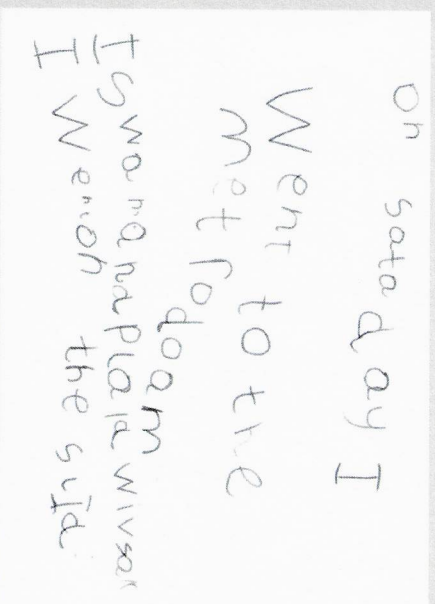 on sataday I
Went to the
metrodoam
I swam and plaid wivsam
I wenon the slid